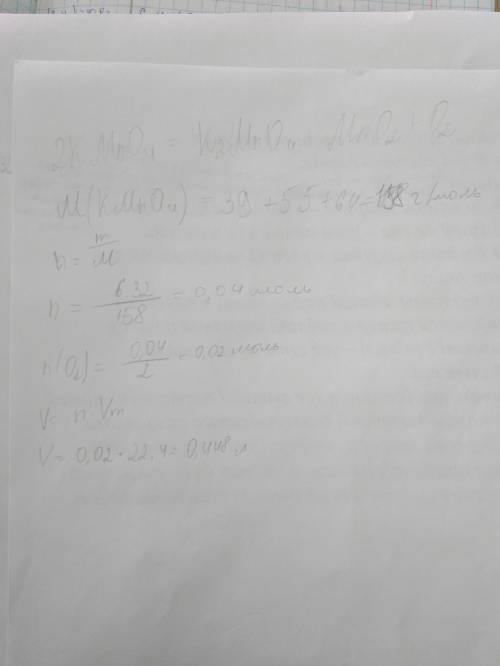 2KMnO₄ = K₂MnO₄ + MnO₂ + O₂
M(KMnO₄) = 39 + 55 + 64 = 158 г/моль
n = m/M
n = 6.32/158 = 0,04 моль
n(O₂) = 0,04/2 = 0,02 моль
V = n · Vm
V = 0,02 · 22,4 = 0,448 л